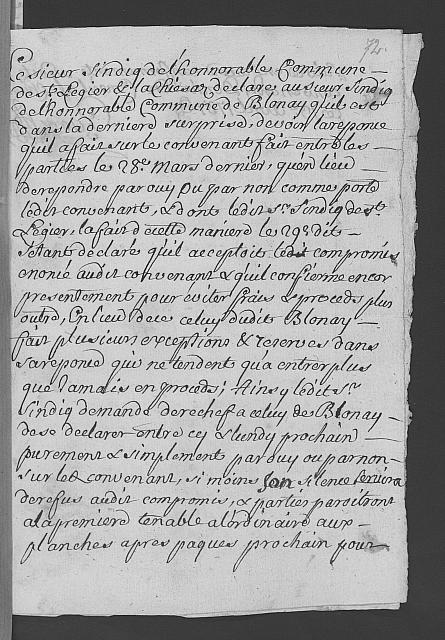 72.
Le sieur Sindiq de lhonnorable Commune
de St. Legier & la Chiesaz declare au sieur Sindiq
de lhonnorable Commune de Blonay qu'il est
dans la derniere surprise, de voir la reponce
qu'il a fait sur le convenant fait entre les
parties le 28e. Mars dernier, qu'en lieu
de repondre par ouy ou par non comme porte
ledit convenant, & dont ledit Sr. Sindiq de St.
Legier, la fait d'icelle maniere le 29e dit
setant declaré qu'il acceptoit ledit compromis
enoncé audit convenant & qu'il confirme encor
presentement pour eviter frais & proceds plus
outre, En lieu de ce celuy dudit Blonay
fait plusieurs exceptions & reserves dans
sa reponce qui ne tendent qu'a entrer plus
que Jamais en proceds; Ainsy ledit Sr.
Sindiq demande derechef a celuy de Blonay
de se declarer entre cy & lundy prochain
purement & simplement par ouy ou par non
sur led convenant, si moins son silence servira
de refus audit compromis, & parties paroitront
a la premiere tenable a l'ordinaire aux
planches apres paques prochain pour